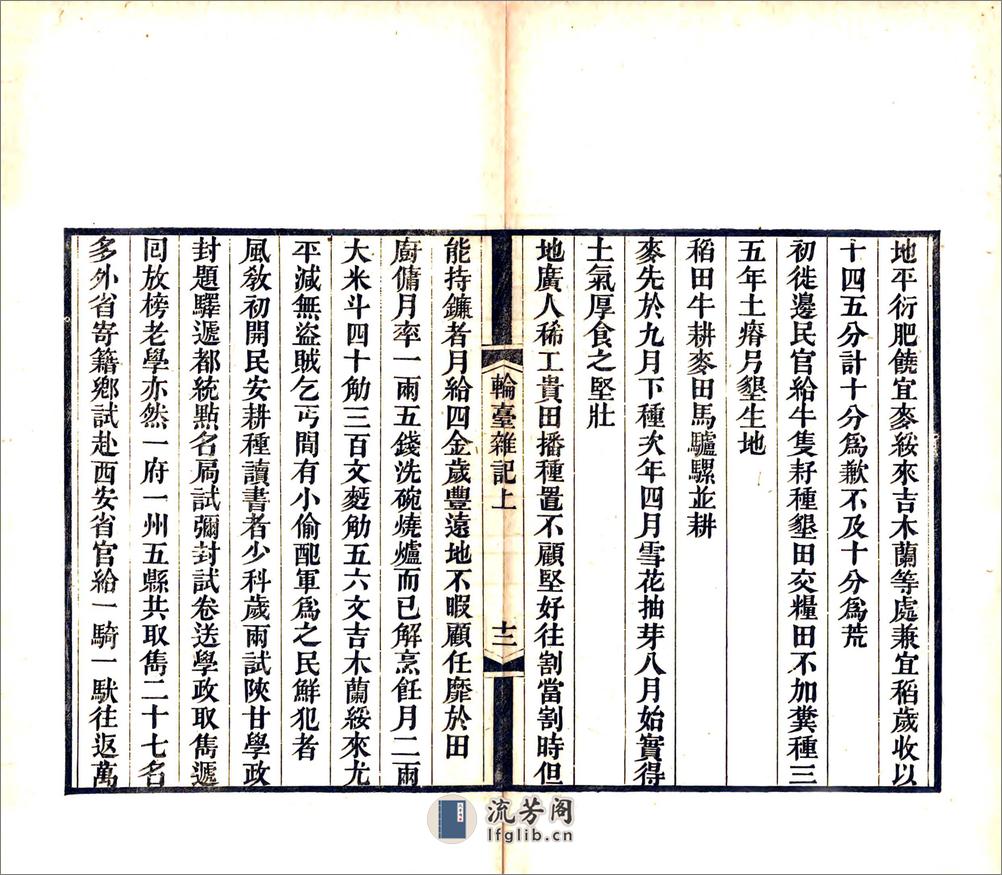 地平衍肥饒宜麥綏來吉木蘭等處兼宜稻歲收以
十四五分計十分爲歉不及十分爲荒
初徙邊民官給牛隻籽種墾田交糧田不加糞種三
五年土瘠另墾生地
稻田牛耕麥田馬驢騾並耕
麥先於九月下種次年四月雪花抽芽八月始實得
土氣厚食之堅壯
地廣人稀工貴田播種置不顧堅好往割當割時但
輪臺雜記上
十三
能持鐮者月給四金歲豐遠地不暇顧任靡於田
廚傭月率一兩五錢洗碗燒爐而已解烹飪月二兩
大米斗四十觔三百文麪觔五六文吉木蘭綏來尤
平減無盜賊乞丐間有小偷配軍爲之民鮮犯者
風教初開民安耕種讀書者少科歲兩試陝甘學政
封題驛遞都統點名局試彌封試卷送學政取雋遞
回放榜老學亦然一府一州五縣共取雋二十七名
多外省寄籍鄉試赴西安省官給一騎一馱往返萬
流芳阁
lfglib.cn